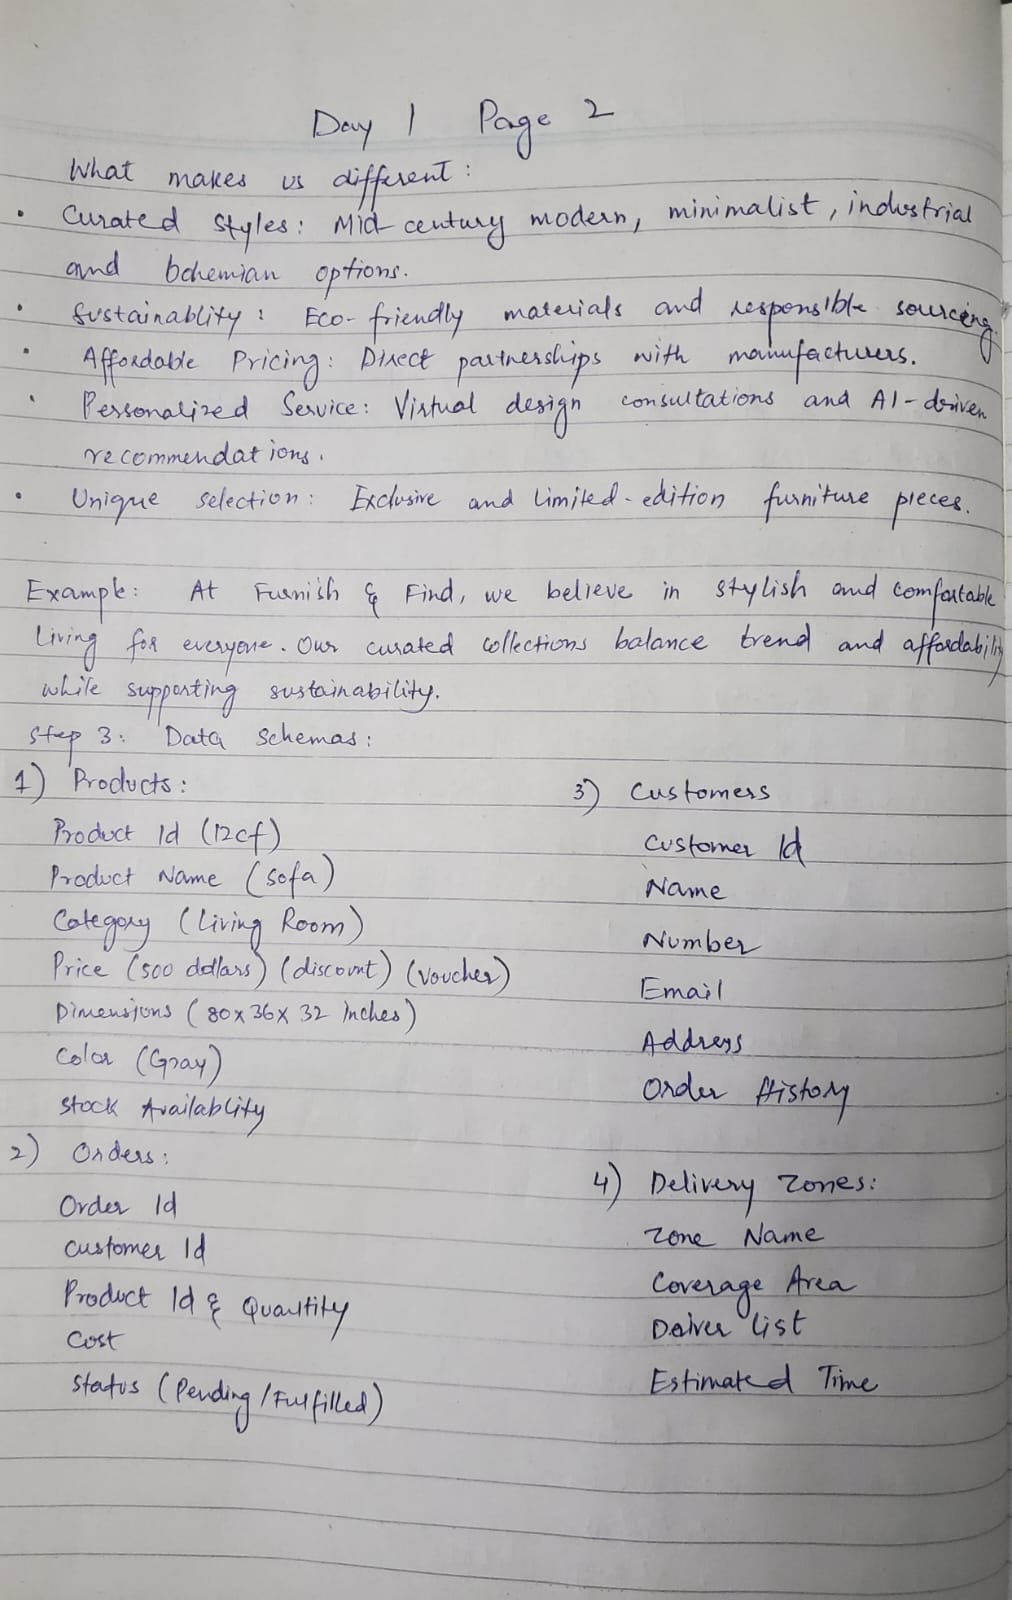 Day 1 Page 2
What makes us different:
• Curated Styles: Mid-century modern, minimalist, industrial
and bohemian options.
• Sustainablity: Eco-friendly materials and responsible sourcing.
• Affordable Pricing: Direct partnerships with manufacturers.
• Personalized Service: Virtual design consultations and AI-driven
recommendations.
• Unique selection: Exclusive and limited-edition furniture pieces.
Example: At Furnish & Find, we believe in stylish and comfortable
living for everyone. Our curated collections balance trend and affordability
while supporting sustainability.
Step 3: Data Schemas:
1) Products:
Product Id (12cf)
Product Name (sofa)
Category (Living Room)
Price (500 dollars) (discount) (voucher)
Dimensions (80x36x32 inches)
Color (Gray)
Stock Availablity
2) Orders:
Order Id
Customer Id
Product Id & Quantity
Cost
Status (Pending/Fulfilled)
3) Customers
Customer Id
Name
Number
Email
Address
Order History
4) Delivery Zones:
Zone Name
Coverage Area
Driver List
Estimated Time